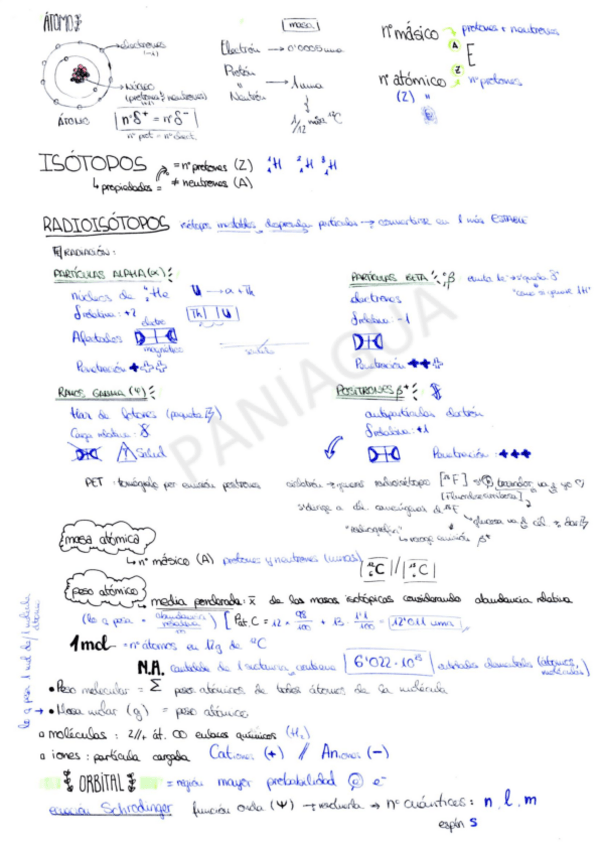 ÁTOMO
masa
electrones
(-)
núcleo
(protones y neutrones)
ÁTOMO
nº δ⁺ = nº δ⁻
nº prot = nº elect
Electrón → 0'0005 uma
Protón
Neutrón → 1 uma
1/12 masa ¹²C
nº másico → protones + neutrones
A
E
Z
nº atómico → nº protones
(Z)
ISÓTOPOS = nº protones (Z) ¹₁H ²₁H ³₁H
↳ propiedades = ≠ neutrones (A)
RADIOISÓTOPOS isótopos inestables, desprende partículas → convertirse en 1 más ESTABLE
RADIACIÓN:
PARTÍCULAS ALPHA (α)
núcleos de ⁴₂He U → α + Th
δ relativa: +2 Th U
Afectados electro
magnético
Penetración +
PARTÍCULAS BETA β
electrones
δ relativa: -1
Penetración ++
RAYOS GAMMA (γ)
Haz de fotones (paquete)
Carga relativa:
Salud
POSITRONES β⁺
antipartícula electrón
δ relativa: +1
Penetración: +++
PET: tomógrafo por emisión positrones
ciclotrón → generar radioisótopo [¹⁸F]
"radiografía"
masa atómica
↳ nº másico (A) protones y neutrones (umas) ¹²₆C // ¹³₆C
peso atómico
→ media ponderada: x̄ de las masas isotópicas considerando abundancia relativa
(lo q pesa × abundancia relativa) [Pat. C = 12 × 98/100 + 13 · 1'1/100 = 12'011 uma]
1 mol = nº átomos en 12g de ¹²C
N.A. cantidade de 1 sustancia, contiene 6'022 · 10²³ entidades elementales (átomos, moléculas)
lo q pesa 1 mol de/1 molécula
átomo
• Peso molecular = Σ pesos atómicos de todos átomos de la molécula
→ • Masa molar (g) = peso atómico
moléculas: 2//+ át. ∞ enlaces químicos (H₂)
iones: partícula cargada Cationes (+) // Aniones (-)
ORBITAL = región mayor probabilidad e⁻
ecuación Schrodinger función onda (Ψ) → resolverla → nº cuánticos: n, l, m
espín s
PANIAQUA